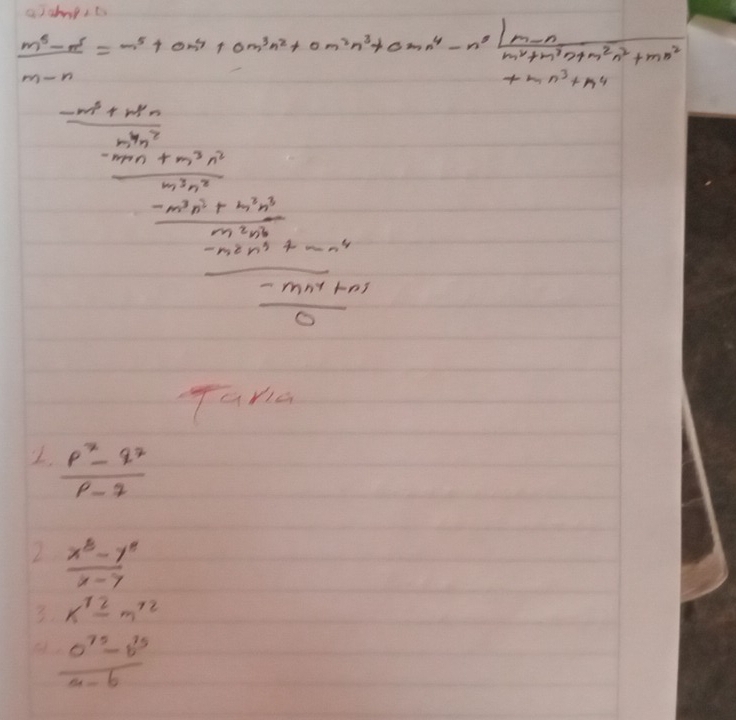 ejemplo
m⁵ - n⁵ = m⁵ + 0m⁴ + 0m³n² + 0m²n³ + 0mn⁴ - n⁵ | m - n
m - n
m⁴ + m³n + m²n² + mn²
+ mn³ + n⁴
-m⁵ + m⁴n
-m⁴n + m³n²
m³n²
-m³n² + m²n³
m²n³
-m²n³ + mn⁴
-mn⁴ + n⁵
0
Taria
1. p⁷ - q⁷
p - q
2. x⁸ - y⁸
x - y
3. k¹² - m¹²
4. a¹⁵ - b¹⁵
a - b